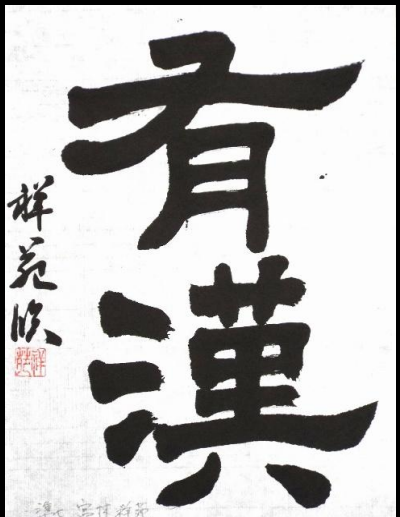 有漢
祥苑临